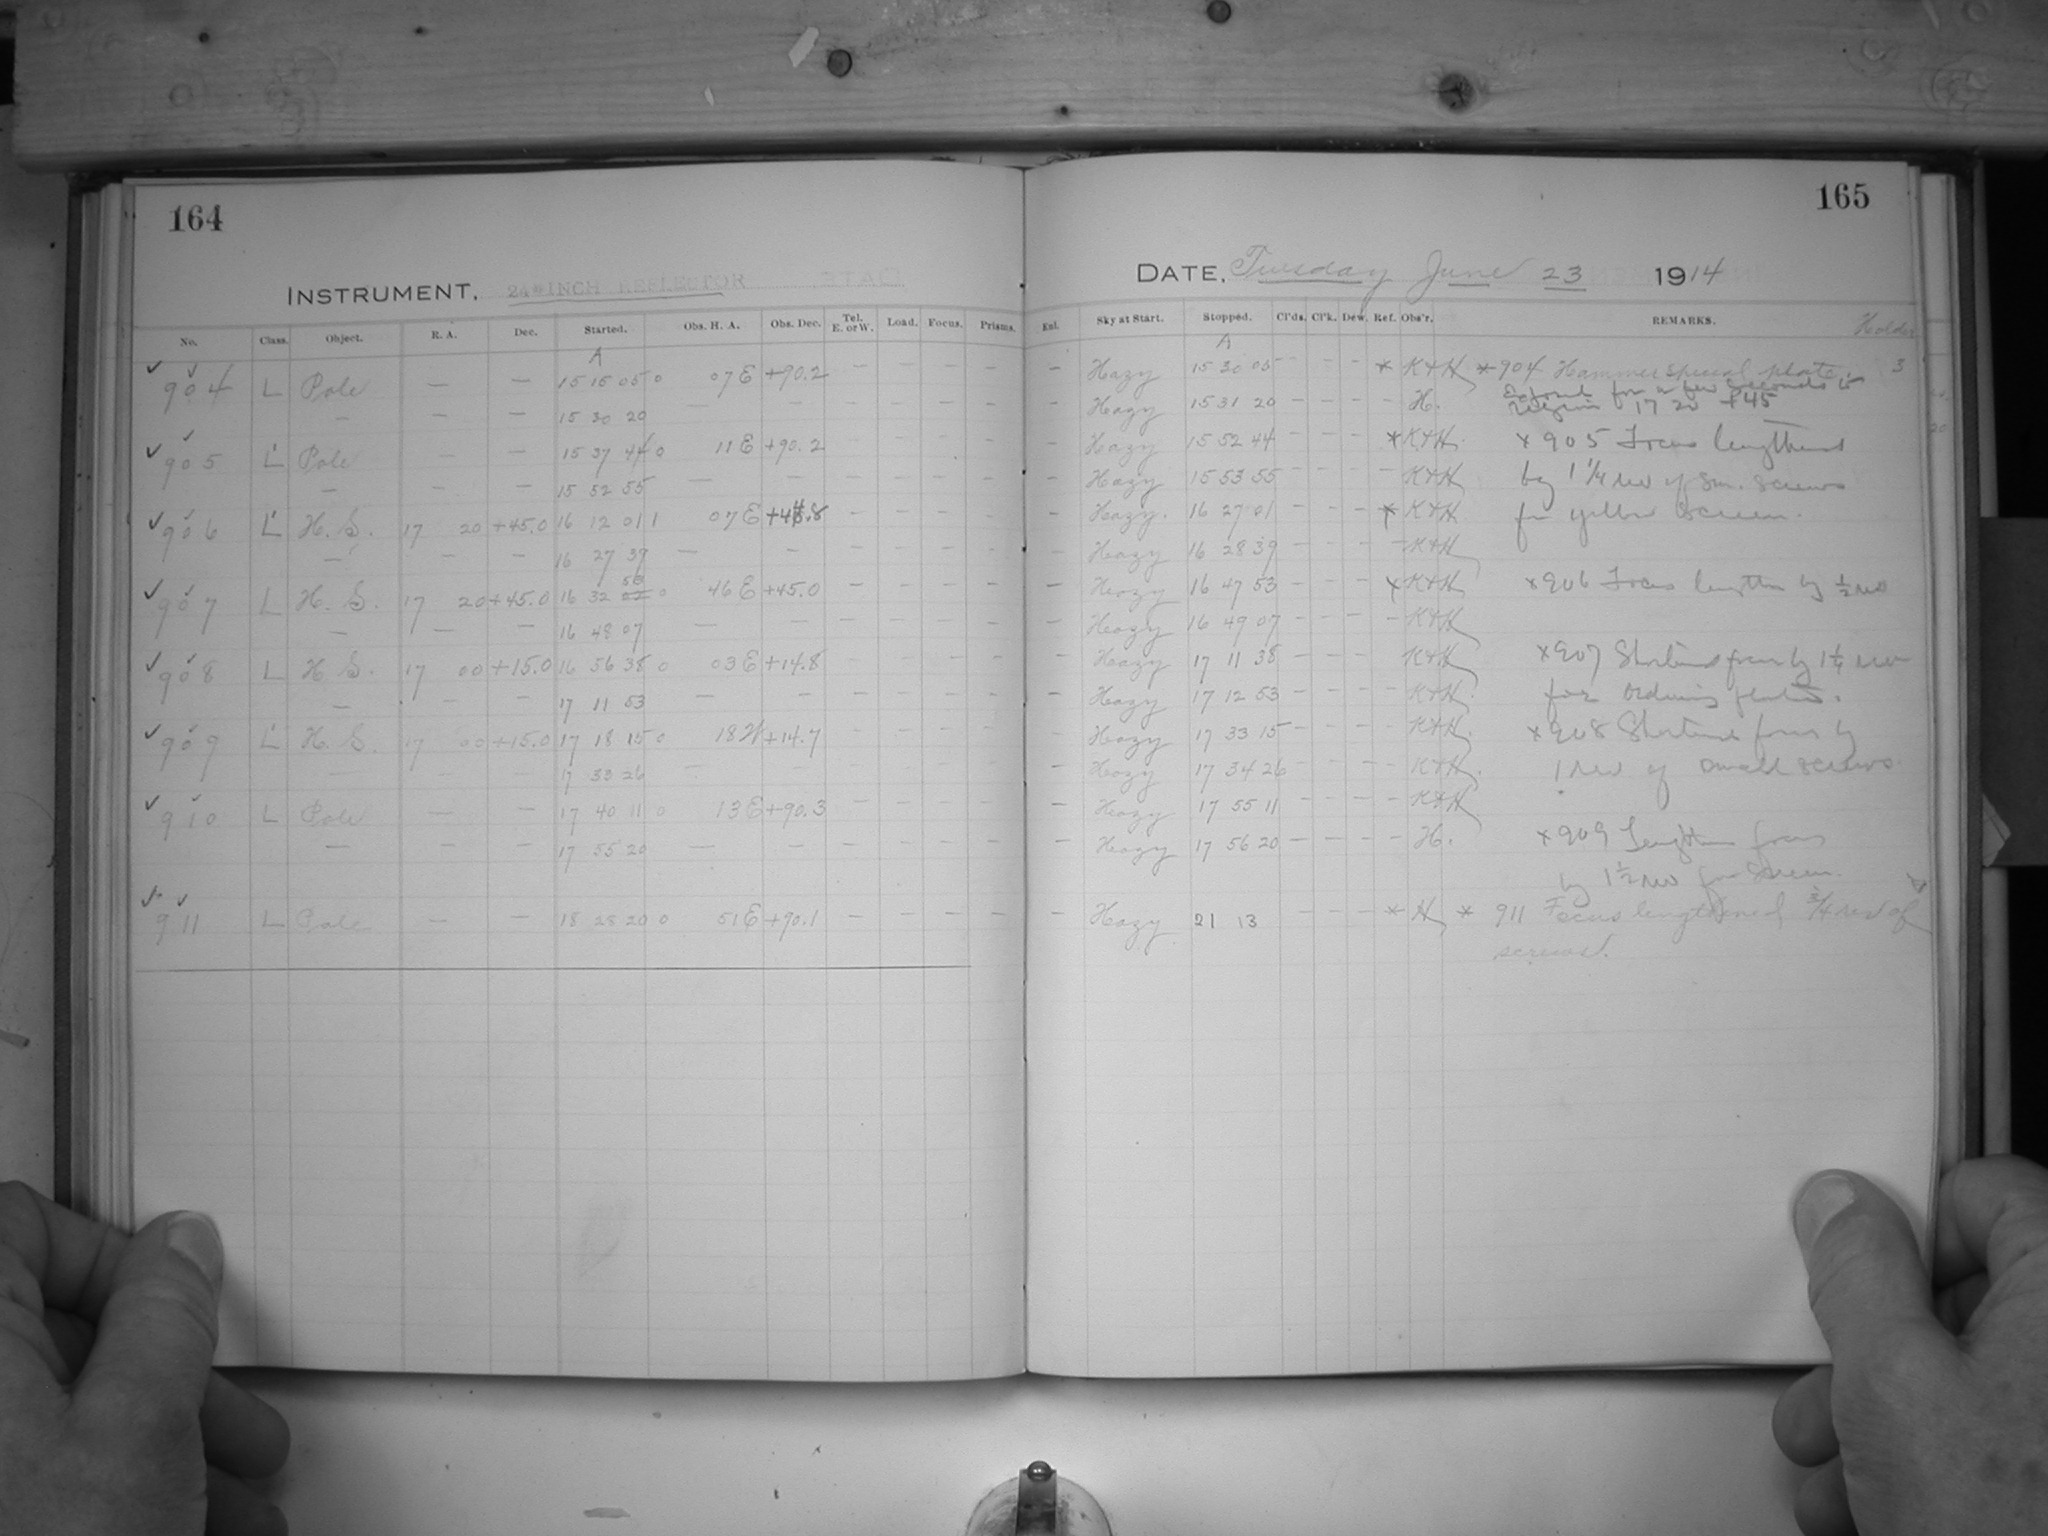 164
INSTRUMENT. 24-INCH REFLECTOR
No. Class. Object. R. A. Dec. Started. Obs. H. A. Obs. Dec. Tel. E. or W. Load. Focus. Prisms.
A
904 L Pole — — 15 15 05 0 07 E +90.2 — — — —
— — — 15 30 20 — — — — — —
905 L' Pole — — 15 37 44 0 11 E +90.2 — — — —
— — — 15 52 55 — — — — — —
906 L' H. S. 17 20 +45.0 16 12 01 1 07 E +44.8 — — — —
— — — 16 27 39 — — — — — —
58
907 L H. S. 17 20 +45.0 16 32 02 0 46 E +45.0 — — — —
— — — 16 48 07 — — — — — —
908 L H S. 17 00 +15.0 16 56 38 0 03 E +14.8 — — — —
— — — 17 11 53 — — — — — —
909 L' H. S. 17 00 +15.0 17 18 15 0 18 W +14.7 — — — —
— — — 17 33 26 — — — — — —
910 L Pole — — 17 40 11 0 13 E +90.3 — — — —
— — — 17 55 20 — — — — — —
911 L Pole — — 18 28 20 0 51 E +90.1 — — — —
165
DATE. Tuesday June 23 1914
Enl. Sky at Start. Stopped. Cl'ds. Cl'k. Dew. Ref. Obs'r. REMARKS. Holder
A
— Hazy 15 30 05 — — — * K+H *904 Hammer special plate. 3
— Hazy 15 31 20 — — — — H. for a few seconds to
region 17 20 +45
— Hazy 15 52 44 — — — * K+H. x 905 Focus lengthened
— Hazy 15 53 55 — — — — K+H by 1 1/4 rev of sm. screws
— Hazy. 16 27 01 — — — * K+H for yellow screen.
— Hazy 16 28 39 — — — — K+H
— Hazy 16 47 53 — — — x K+H x906 Focus lengthen by 1/2 rev
— Hazy 16 49 07 — — — — K+H
— Hazy 17 11 38 — — — — K+H x907 Shortened focus by 1 1/4 rev
— Hazy 17 12 53 — — — — K+H. for ordinary plates.
— Hazy 17 33 15 — — — — K+H. x908 Shortened focus by
— Hazy 17 34 26 — — — — K+H. 1 rev of small screws.
— Hazy 17 55 11 — — — — K+H
— Hazy 17 56 20 — — — — H. x909 Lengthen focus
by 1 1/2 rev for screen.
— Hazy 21 13 — — — * H * 911 Focus lengthened 3/4 rev of
screws.